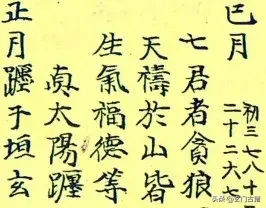 巳月
初三七八十
二十二六七
七君者貪狼
天禱於山皆
生氣福德等
真太陽躔
正月躔子垣玄
头条 @玄门古籍